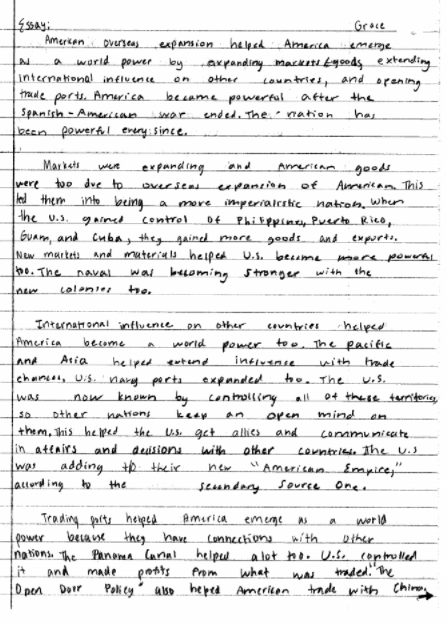 Essay: Grace
American overseas expansion helped America emerge
as a world power by expanding markets & goods, extending
international influence on other countries, and opening
trade ports. America became powerful after the
Spanish-American war ended. The nation has
been powerful every since.
Markets were expanding and American goods
were too due to overseas expansion of American. This
led them into being a more imperialistic nation. When
the U.S. gained control of Philippines, Puerto Rico,
Guam, and Cuba, they gained more goods and exports.
New markets and materials helped U.S. become more powerful
too. The naval was becoming stronger with the
new colonies too.
International influence on other countries helped
America become a world power too. The pacific
and Asia helped extend influence with trade
chances. U.S. navy ports expanded too. The U.S.
was now known by controlling all of these territories,
so other nations keep an open mind on
them. This helped the U.S. get allies and communicate
in afairs and decisions with other countries. The U.S
was adding to their new "American Empire,"
according to the secondary source one.
Trading ports helped America emerge as a world
power because they have connections with other
nations. The Panama Canal helped a lot too. U.S. controlled
it and made profits from what was traded. "The
Open Door Policy" also heped American trade with China.